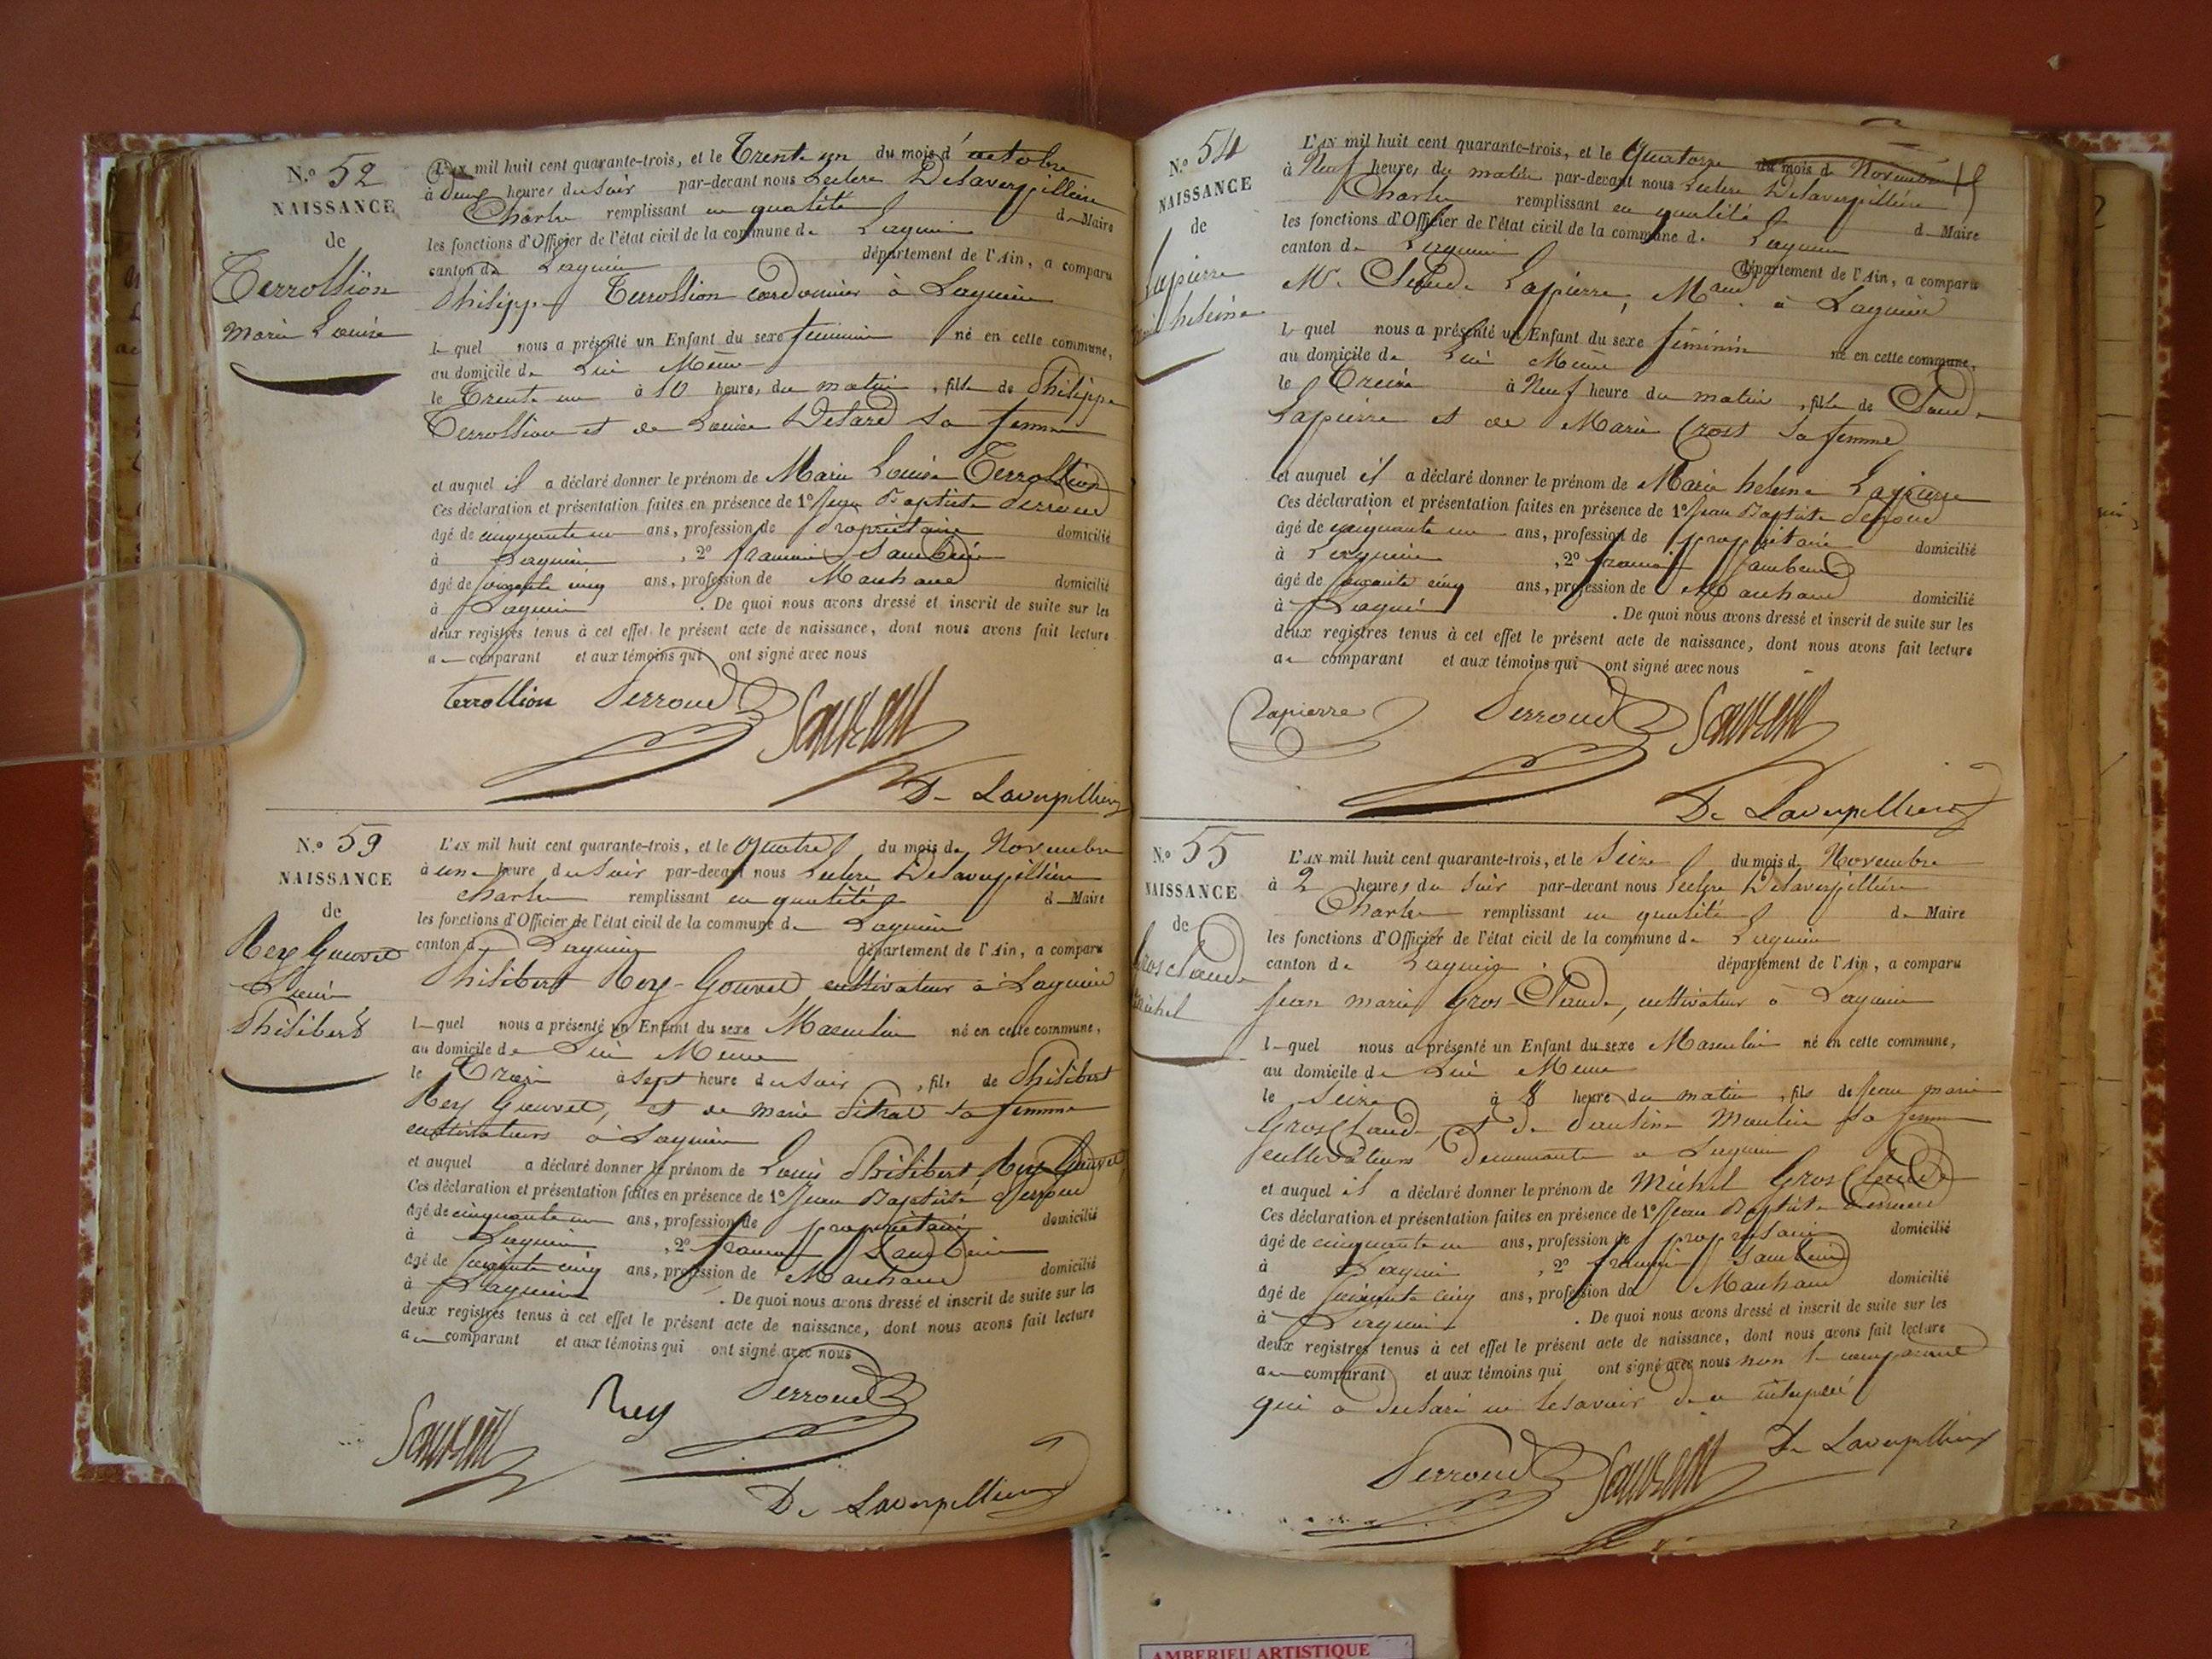 N.º 52
NAISSANCE
de
Terrollion
Marie Louise
L'AN mil huit cent quarante-trois, et le Trente un du mois d' octobre
à deux heures du soir par-devant nous Leclerc Delaverpillière
Charles remplissant en qualité de Maire
les fonctions d'Officier de l'état civil de la commune de Lagnieu
canton de Lagnieu département de l'Ain, a comparu
Philippe Terrollion cordonnier à Lagnieu
lequel nous a présenté un Enfant du sexe féminin né en cette commune,
au domicile de Lui Même
le Trente un à 10 heures du matin, fille de Philippe
Terrollion et de Louise sa femme
et auquel il a déclaré donner le prénom de Marie Louise Terrollion
Ces déclaration et présentation faites en présence de 1º Jean Baptiste Perroud
âgé de cinquante un ans, profession de propriétaire domicilié
à Lagnieu, 2º françois
âgé de cinq ans, profession de Marchand domicilié
à Lagnieu. De quoi nous avons dressé et inscrit de suite sur les
deux registres tenus à cet effet le présent acte de naissance, dont nous avons fait lecture
au comparant et aux témoins qui ont signé avec nous
terrollion Perroud
De Laverpillière
N.º 59
NAISSANCE
de
Rey Gouvet
Louis
Philibert
L'AN mil huit cent quarante-trois, et le quatre du mois de Novembre
à une heure du soir par-devant nous Leclerc Delaverpillière
Charles remplissant en qualité de Maire
les fonctions d'Officier de l'état civil de la commune de Lagnieu
canton de Lagnieu département de l'Ain, a comparu
Philibert Rey-Gouvet cultivateur à Lagnieu
lequel nous a présenté un Enfant du sexe Masculin né en cette commune,
au domicile de Lui Même
le Trois à sept heure du soir, fils de Philibert
Rey Gouvet, et de Marie sa femme
cultivateurs à Lagnieu
et auquel a déclaré donner le prénom de Louis Philibert Rey Gouvet
Ces déclaration et présentation faites en présence de 1º Jean Baptiste Perroud
âgé de cinquante un ans, profession de propriétaire domicilié
à Lagnieu, 2º françois
âgé de cinq ans, profession de Marchand domicilié
à Lagnieu. De quoi nous avons dressé et inscrit de suite sur les
deux registres tenus à cet effet le présent acte de naissance, dont nous avons fait lecture
au comparant et aux témoins qui ont signé avec nous
Rey Perroud
De Laverpillière
N.º 54
NAISSANCE
de
Lapierre
heleine
L'AN mil huit cent quarante-trois, et le Quatorze du mois de Novembre
à Neuf heures du matin par-devant nous Leclerc Delaverpillière
Charles remplissant en qualité de Maire
les fonctions d'Officier de l'état civil de la commune de Lagnieu
canton de Lagnieu département de l'Ain, a comparu
Mr. Claude Lapierre, Mand. à Lagnieu
lequel nous a présenté un Enfant du sexe féminin né en cette commune,
au domicile de Lui Même
le Treize à Neuf heure du matin, fille de Claude
Lapierre et de Marie sa femme
et auquel il a déclaré donner le prénom de Marie heleine Lapierre
Ces déclaration et présentation faites en présence de 1º Jean Baptiste Perroud
âgé de cinquante un ans, profession de propriétaire domicilié
à Lagnieu, 2º françois
âgé de cinq ans, profession de Marchand domicilié
à Lagnieu. De quoi nous avons dressé et inscrit de suite sur les
deux registres tenus à cet effet le présent acte de naissance, dont nous avons fait lecture
au comparant et aux témoins qui ont signé avec nous
Lapierre Perroud
De Laverpillière
N.º 55
NAISSANCE
de
Gros Claude
Michel
L'AN mil huit cent quarante-trois, et le Seize du mois de Novembre
à 2 heures du soir par-devant nous Leclerc Delaverpillière
Charles remplissant en qualité de Maire
les fonctions d'Officier de l'état civil de la commune de Lagnieu
canton de Lagnieu département de l'Ain, a comparu
Jean marie Gros-Claude, cultivateur à Lagnieu
lequel nous a présenté un Enfant du sexe Masculin né en cette commune,
au domicile de Lui Même
le Seize à 8 heure du matin, fils de Jean marie
Gros Claude, et de Moulin sa femme
cultivateurs demeurants à Lagnieu
et auquel il a déclaré donner le prénom de Michel Gros Claude
Ces déclaration et présentation faites en présence de 1º Jean Baptiste Perroud
âgé de cinquante un ans, profession de propriétaire domicilié
à Lagnieu, 2º françois
âgé de cinq ans, profession de Marchand domicilié
à Lagnieu. De quoi nous avons dressé et inscrit de suite sur les
deux registres tenus à cet effet le présent acte de naissance, dont nous avons fait lecture
au comparant et aux témoins qui ont signé avec nous non le comparant
qui a déclaré ne le savoir de ce
Perroud De Laverpillière
AMBERIEU ARTISTIQUE